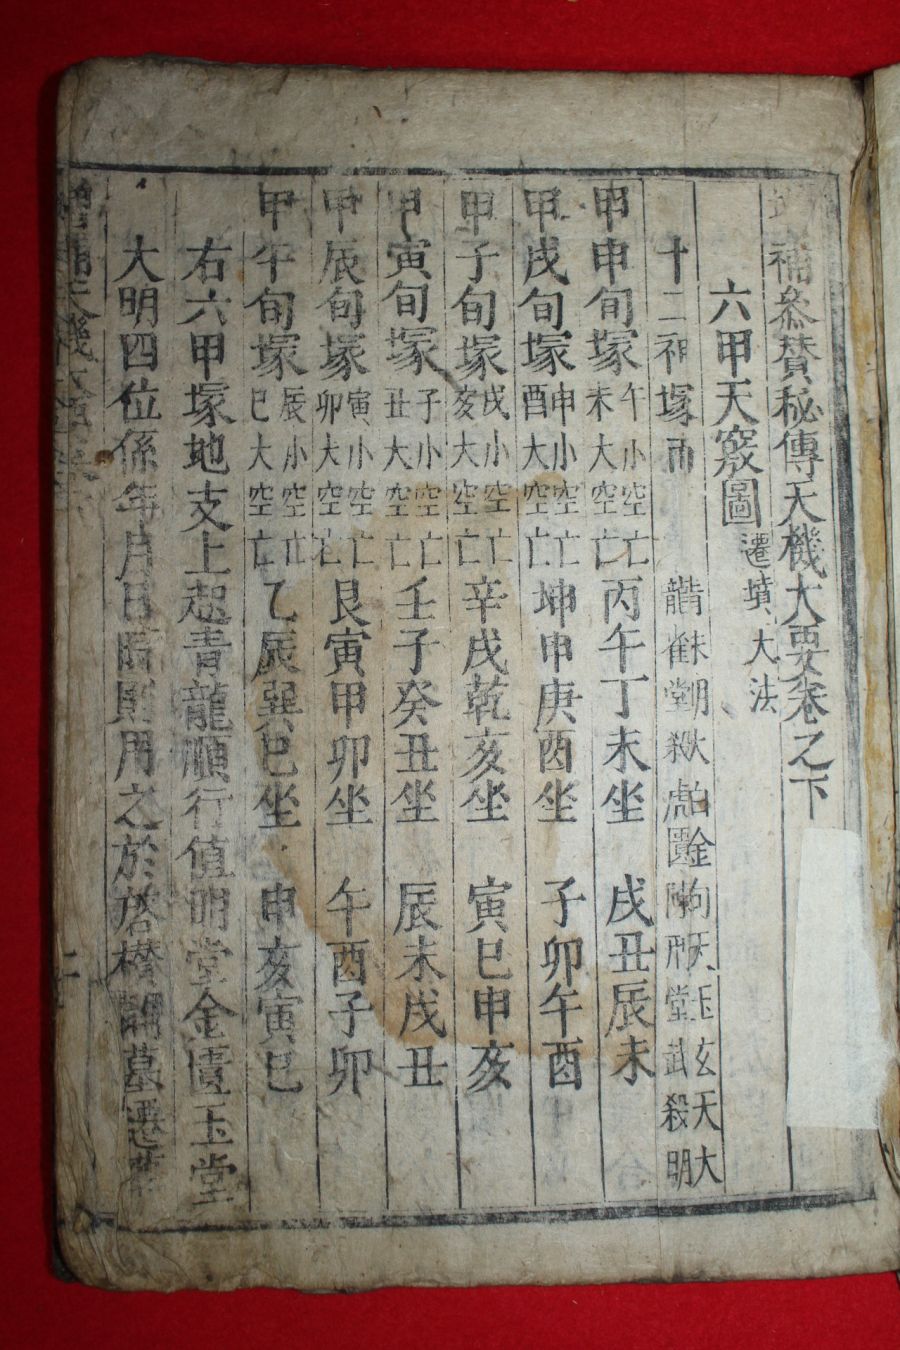 補參贊秘傳天機大要卷之下
六甲天竅圖 遷墳大法
十二神塚而 龍雀堂
甲申旬塚 午小空亡 未大空亡 丙午丁未坐 戌丑辰未
甲戌旬塚 申小空亡 酉大空亡 坤申庚酉坐 子卯午酉
甲子旬塚 戌小空亡 亥大空亡 辛戌乾亥坐 寅巳申亥
甲寅旬塚 子小空亡 丑大空亡 壬子癸丑坐 辰未戌丑
甲辰旬塚 寅小空亡 卯大空亡 艮寅甲卯坐 午酉子卯
甲午旬塚 辰小空亡 巳大空亡 乙辰巽巳坐 申亥寅巳
右六甲塚地支上起青龍順行值明堂金匱玉堂
大明四位係年月日時則用之於啓攢開墓遷葬